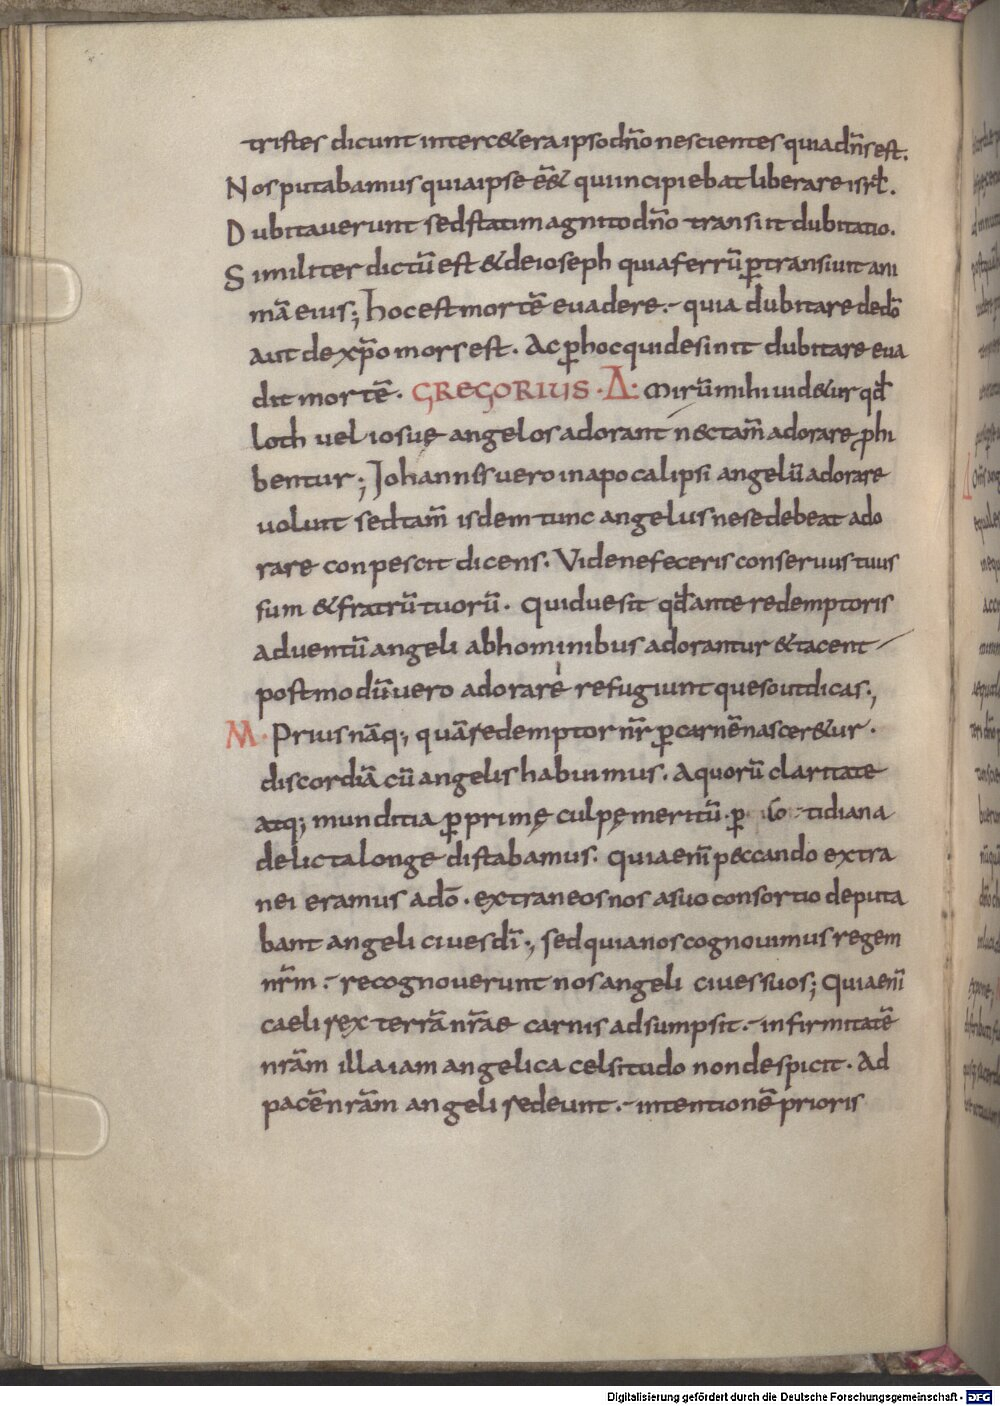 tristes dicunt inter c&era ipso dn̄o nescientes quia dn̄s est.
Nos putabamus quia ipse ēē& qui incipiebat liberare isrł.
Dubitauerunt sed statim agnito dn̄o transiit dubitatio.
Similiter dictū est & de ioseph quia ferrū ꝑtransiuit ani
mā eius; hoc est mortē euadere.- quia dubitare de dō
aut de xp̄o mors est. Ac ꝑ hoc qui desinit dubitare eua
dit mortē. GREGORIUS · Δ: Mirū mihi uid&ur qđ
loth uel iosuę angelos adorant n& tam̄ adorare ꝓhi
bentur; Johannes uero in apocalipsi angelū adorare
uoluit sed tam̄ isdem tunc angelus ne se debeat ado
rare conpescit dicens. Vide ne feceris conseruus tuus
sum & fratrū tuorū. Quid ue sit qđ ante redemptoris
aduentū angeli ab hominibus adorantur & tacent
postmodū uero adorari refugiunt queso ut dicas.,
M· Prius nāq; quā redemptor nr̄ ꝑ carnē nascer&ur.
discordiā cū angelis habuimus. A quorū claritate
atq; munditia ꝑ primę culpę meritū. ꝑ tidiana
delicta longe distabamus. Quia eni̅ peccando extra
nei eramus a dō. extraneos nos a suo consortio deputa
bant angeli ciues dī., sed quia nos cognouimus regem
nr̄m.- recognouerunt nos angeli ciues suos; Quia eni̅
caeli rex terrā nr̄ae carnis adsumpsit.- infirmitatē
nr̄am illa iam angelica celsitudo non despicit. Ad
pacē nr̄am angeli redeunt.- intentionē prioris
Digitalisierung gefördert durch die Deutsche Forschungsgemeinschaft - DFG